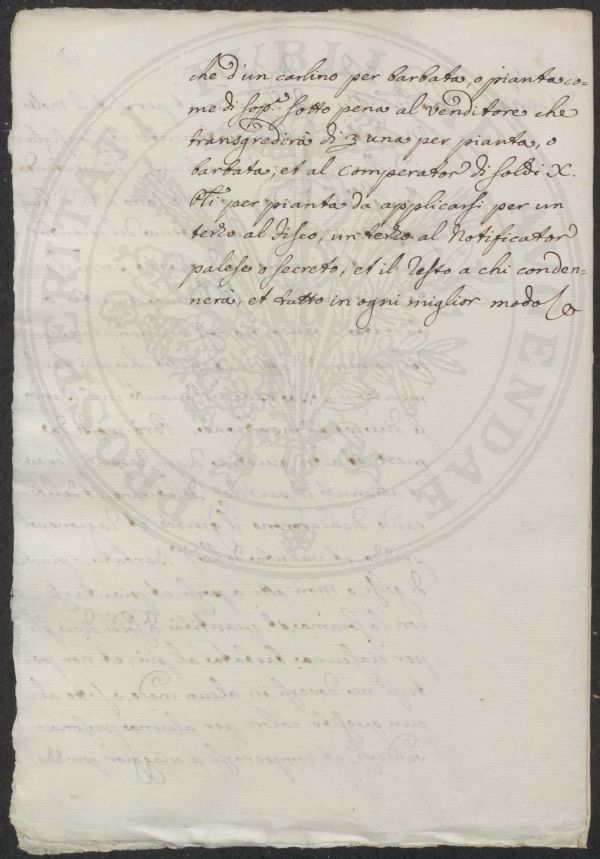 che d'un carlino per barbata, o pianta co=
me di sop.ª sotto pena al venditore che
transgredirà di 3 una per pianta, o
barbata, et al comperator di soldi X.
per pianta da applicarsi per un
terzo al Fisco, un terzo al Notificator
palese, o secreto, et il resto a chi conden=
nerà, et tutto in ogni miglior modo
PROSPERITATI PUBLI AUGENDAE